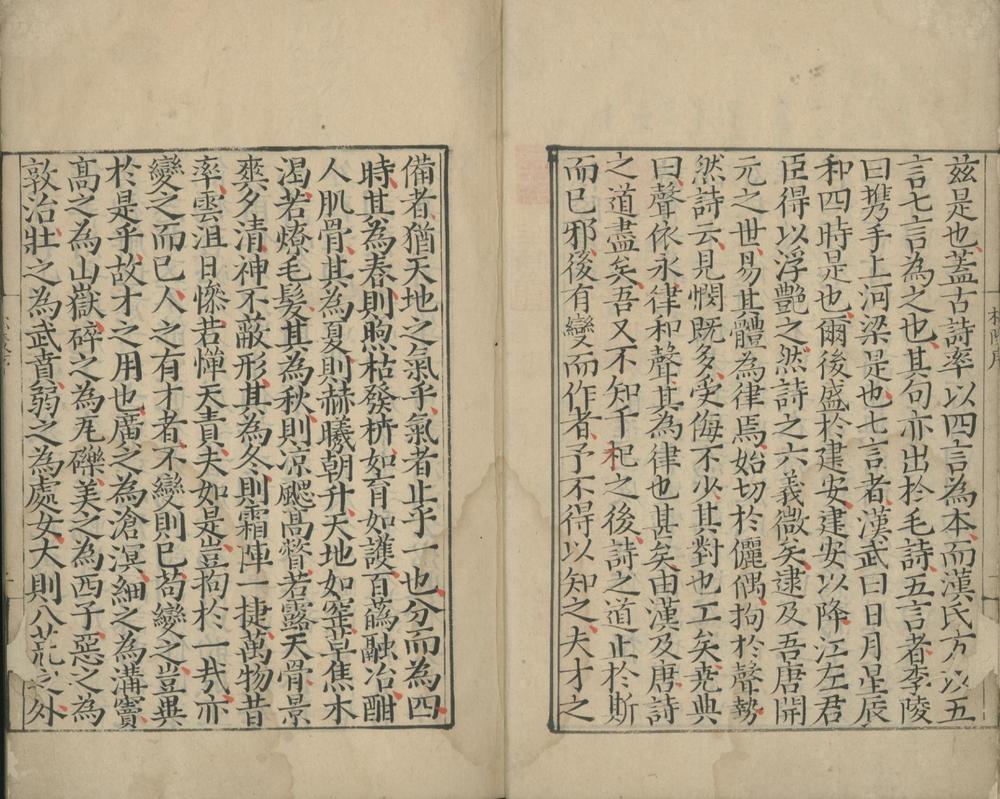 茲是也蓋古詩率以四言為本而漢氏方以五
言七言為之也其句亦出於毛詩五言者李陵
曰攜手上河梁是也七言者漢武曰日月星辰
和四時是也爾後盛於建安建安以降江左君
臣得以浮艷之然詩之六義微矣逮及吾唐開
元之世易其體為律焉始切於儷偶拘於聲勢
然詩云見憫既多受侮不少其對也工矣堯典
曰聲依永律和聲其為律也甚矣由漢及唐詩
之道盡矣吾又不知千祀之後詩之道止於斯
而已邪後有變而作者予不得以知之夫才之
備者猶天地之氣乎氣者止乎一也分而為四
時其為春則煦枯發枿如育如護百蘤融冶酣
人肌骨其為夏則赫曦朝升天地如窯草焦木
渴若燎毛髮其為秋則凉颸高瞥若露天骨景
爽夕清神不蔽形其為冬則霜陣一捷萬物昔
率雲沮日慘若憚天責夫如是豈拘於一哉亦
變之而已人之有才者不變則已苟變之豈異
於是乎故才之用也廣之為滄溟細之為溝竇
高之為山嶽碎之為瓦礫美之為西子惡之為
敦洽壯之為武賁弱之為處女大則八荒之外